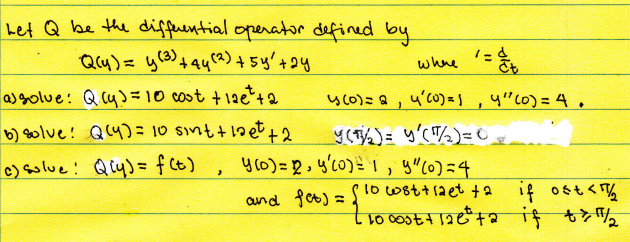 Let Q be the differential operator defined by
Q(y) = y⁽³⁾ + 4y⁽²⁾ + 5y' + 2y where ' = d/dt
a) solve: Q(y) = 10 cost + 12e^t + 2 y(0) = 2, y'(0) = 1, y''(0) = 4.
b) solve: Q(y) = 10 sint + 12e^t + 2 y(π/2) = y'(π/2) = 0
c) solve: Q(y) = f(t), y(0) = 2, y'(0) = 1, y''(0) = 4
and f(t) = { 10 cost + 12e^t + 2 if 0 ≤ t < π/2
10 cost + 12e^t + 2 if t ≥ π/2